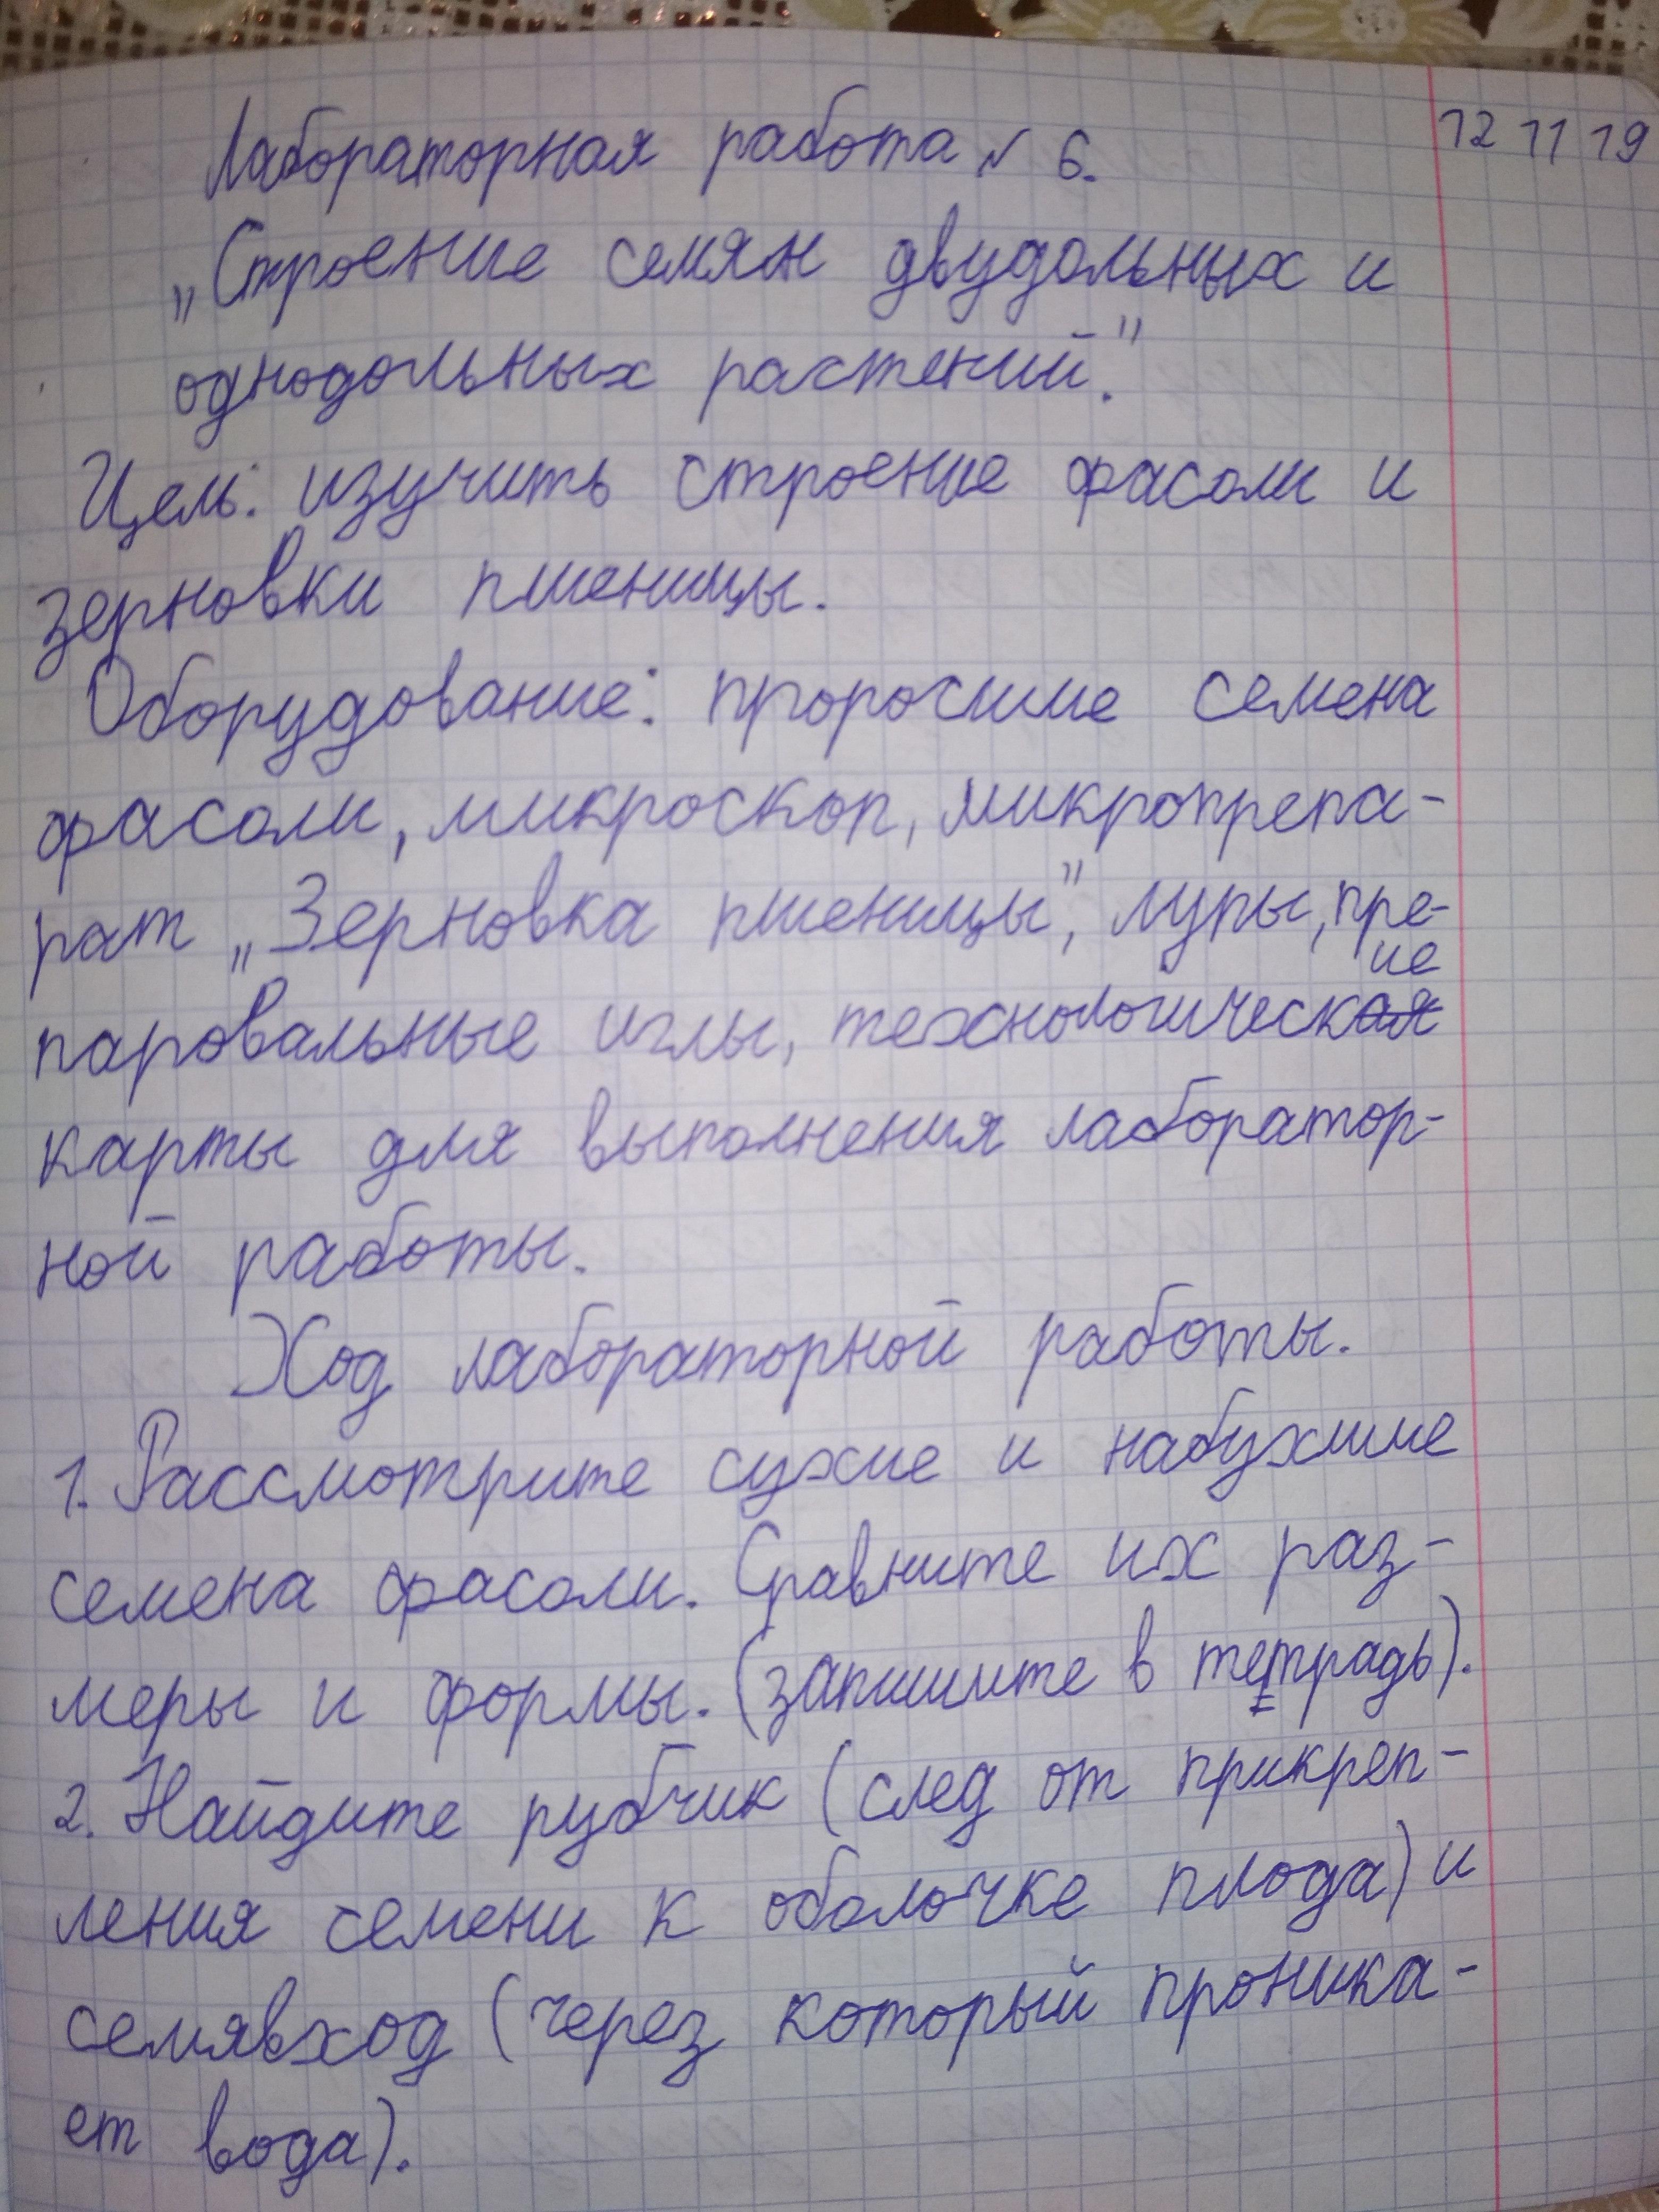 12 11 19
Лабораторная работа № 6.
„Строение семян двудольных и
однодольных растений."
Цель: изучить строение фасоли и
зерновки пшеницы.
Оборудование: проросшие семена
фасоли, микроскоп, микропрепа-
рат „Зерновка пшеницы", лупы, пре-
паровальные иглы, технологические
карты для выполнения лаборатор-
ной работы.
Ход лабораторной работы.
1. Рассмотрите сухие и набухшие
семена фасоли. Сравните их раз-
меры и формы. (запишите в тетрадь).
2. Найдите рубчик (след от прикреп-
ления семени к оболочке плода) и
семявход (через который проника-
ет вода).